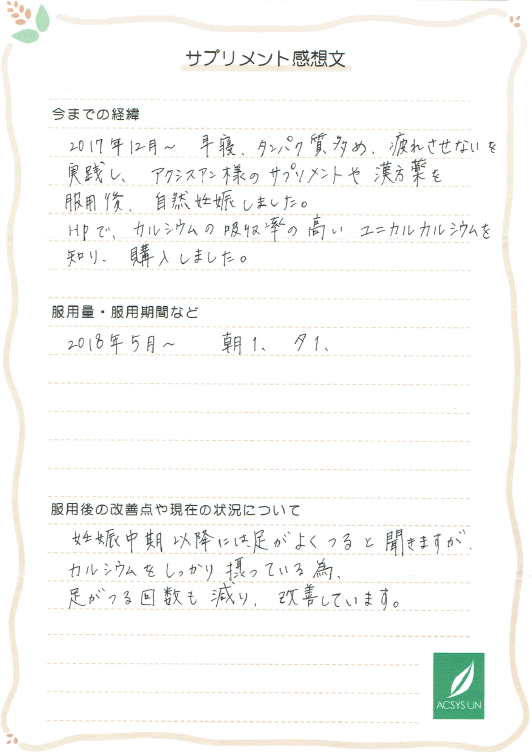 サプリメント感想文
今までの経緯
2017年12月～ 早寝、タンパク質多め、疲れさせないを
実践し、アクシスアン様のサプリメントや漢方薬を
服用後、自然妊娠しました。
HPで、カルシウムの吸収率の高いユニカルカルシウムを
知り、購入しました。
服用量・服用期間など
2018年5月～ 朝1、夕1、
服用後の改善点や現在の状況について
妊娠中期以降には足がよくつると聞きますが、
カルシウムをしっかり摂っている為、
足がつる回数も減り、改善しています。
ACSYS UN